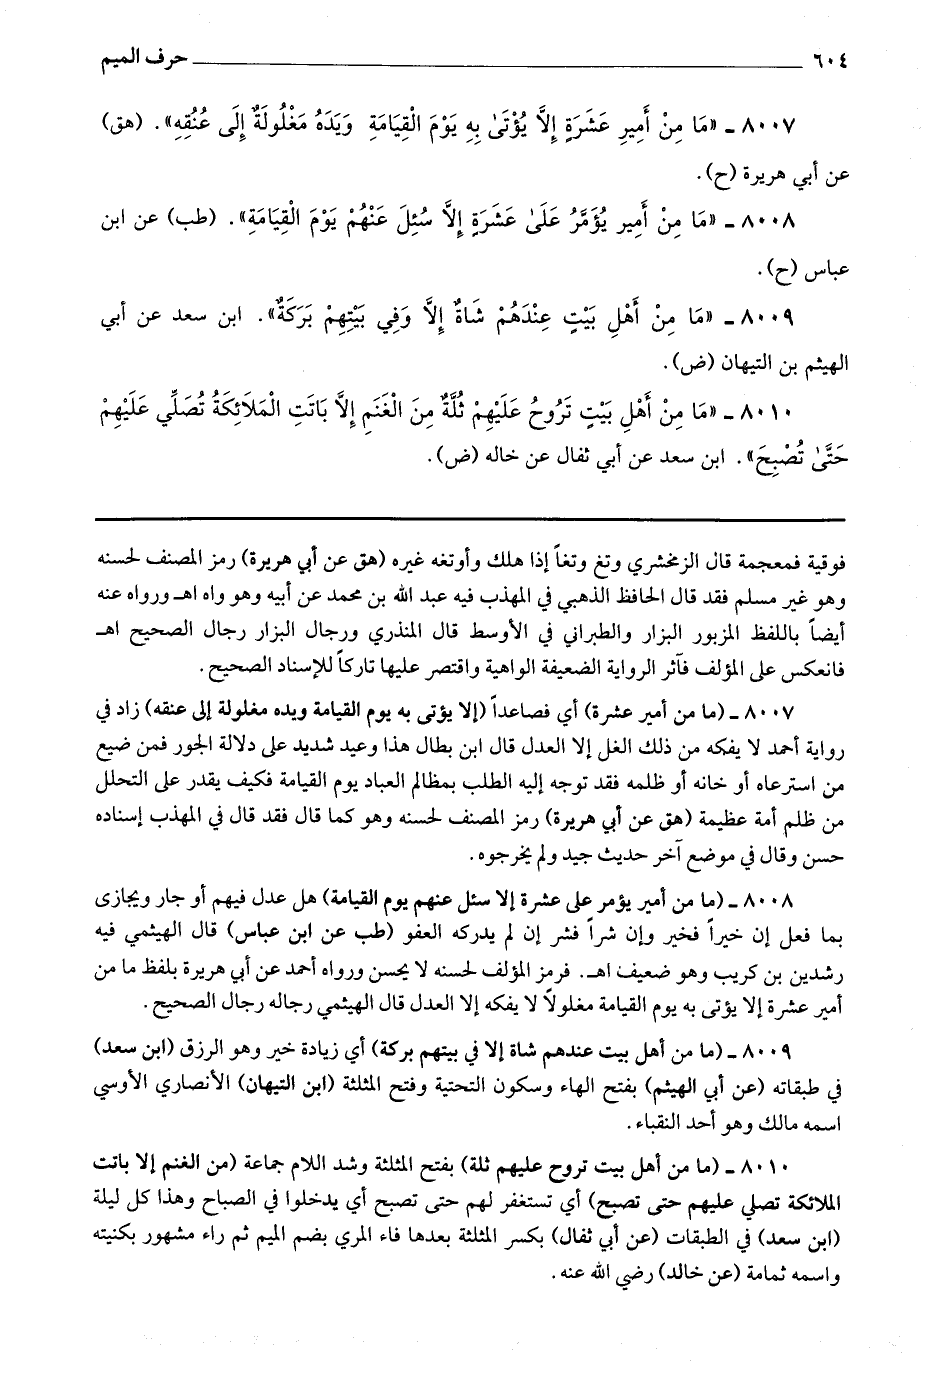 ٦٠٤ حرف الميم
٨٠٠٧ ـ «مَا مِنْ أَمِيرِ عَشَرَةٍ إِلَّا يُؤْتَىٰ بِهِ يَوْمَ الْقِيَامَةِ وَيَدَهُ مَغْلُولَةٌ إِلَى عُنُقِهِ». (هق)
عن أبي هريرة (ح).
٨٠٠٨ ـ «مَا مِنْ أَمِيرٍ يُؤَمَّرُ عَلَىٰ عَشَرَةٍ إِلَّا سُئِلَ عَنْهُمْ يَوْمَ الْقِيَامَةِ». (طب) عن ابن
عباس (ح).
٨٠٠٩ ـ «مَا مِنْ أَهْلِ بَيْتٍ عِنْدَهُمْ شَاةٌ إِلَّا وَفِي بَيْتِهِمْ بَرَكَةٌ». ابن سعد عن أبي
الهيثم بن التيهان (ض).
٨٠١٠ ـ «مَا مِنْ أَهْلِ بَيْتٍ تَرُوحُ عَلَيْهِمْ ثَلَّةٌ مِنَ الْغَنَمِ إِلَّا بَاتَتِ الْمَلَائِكَةُ تُصَلِّي عَلَيْهِمْ
حَتَّىٰ تُصْبِحَ». ابن سعد عن أبي ثفال عن خاله (ض).
فوقية فمعجمة قال الزمخشري وتغ وتغاً إذا هلك وأوتغه غيره (هق عن أبي هريرة) رمز المصنف لحسنه
وهو غير مسلم فقد قال الحافظ الذهبي في المهذب فيه عبد الله بن محمد عن أبيه وهو واه اهـ ورواه عنه
أيضاً باللفظ المزبور البزار والطبراني في الأوسط قال المنذري ورجال البزار رجال الصحيح اهـ
فانعكس على المؤلف فآثر الرواية الضعيفة الواهية واقتصر عليها تاركاً للإسناد الصحيح.
٨٠٠٧ ـ (ما من أمير عشرة) أي فصاعداً (إلا يؤتى به يوم القيامة ويده مغلولة إلى عنقه) زاد في
رواية أحمد لا يفكه من ذلك الغل إلا العدل قال ابن بطال هذا وعيد شديد على دلالة الجور فمن ضيع
من استرعاه أو خانه أو ظلمه فقد توجه إليه الطلب بمظالم العباد يوم القيامة فكيف يقدر على التحلل
من ظلم أمة عظيمة (هق عن أبي هريرة) رمز المصنف لحسنه وهو كما قال فقد قال في المهذب إسناده
حسن وقال في موضع آخر حديث جيد ولم يخرجوه.
٨٠٠٨ ـ (ما من أمير يؤمر على عشرة إلا سئل عنهم يوم القيامة) هل عدل فيهم أو جار ويجازى
بما فعل إن خيراً فخير وإن شراً فشر إن لم يدركه العفو (طب عن ابن عباس) قال الهيثمي فيه
رشدين بن كريب وهو ضعيف اهـ. فرمز المؤلف لحسنه لا يحسن ورواه أحمد عن أبي هريرة بلفظ ما من
أمير عشرة إلا يؤتى به يوم القيامة مغلولاً لا يفكه إلا العدل قال الهيثمي رجاله رجال الصحيح.
٨٠٠٩ ـ (ما من أهل بيت عندهم شاة إلا في بيتهم بركة) أي زيادة خير وهو الرزق (ابن سعد)
في طبقاته (عن أبي الهيثم) بفتح الهاء وسكون التحتية وفتح المثلثة (ابن التيهان) الأنصاري الأوسي
اسمه مالك وهو أحد النقباء.
٨٠١٠ ـ (ما من أهل بيت تروح عليهم ثلة) بفتح المثلثة وشد اللام جماعة (من الغنم إلا باتت
الملائكة تصلي عليهم حتى تصبح) أي تستغفر لهم حتى تصبح أي يدخلوا في الصباح وهذا كل ليلة
(ابن سعد) في الطبقات (عن أبي ثفال) بكسر المثلثة بعدها فاء المري بضم الميم ثم راء مشهور بكنيته
واسمه ثمامة (عن خالد) رضي الله عنه.